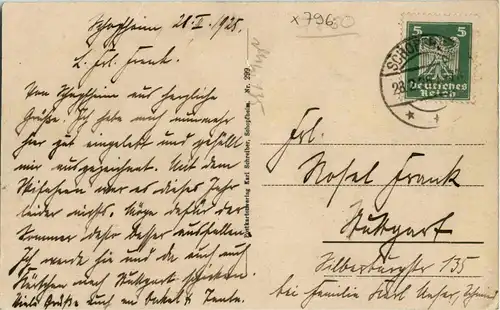 Schopfheim 28.II.1925.
L. Frl. Frank.
Von Schopfheim aus herzliche
Grüße. Ich habe mich nunmehr
hier gut eingelebt und gefällt
mir ausgezeichnet. Mit dem
Skifahren war es dieses Jahr
leider nichts. Möge dafür der
Sommer desto besser ausfallen.
Ich werde hie und da auch
Kärtchen nach Stuttgart schicken.
Viele Grüße auch an Onkel & Tante.
x 7965
Postkartenverlag Karl Schreiber, Schopfheim. Nr. 299
5 5
Deutsches
Reich
SCHOPFHEIM
28.
Frl.
Rosel Frank
Stuttgart
Silberburgstr 135
bei Familie Karl